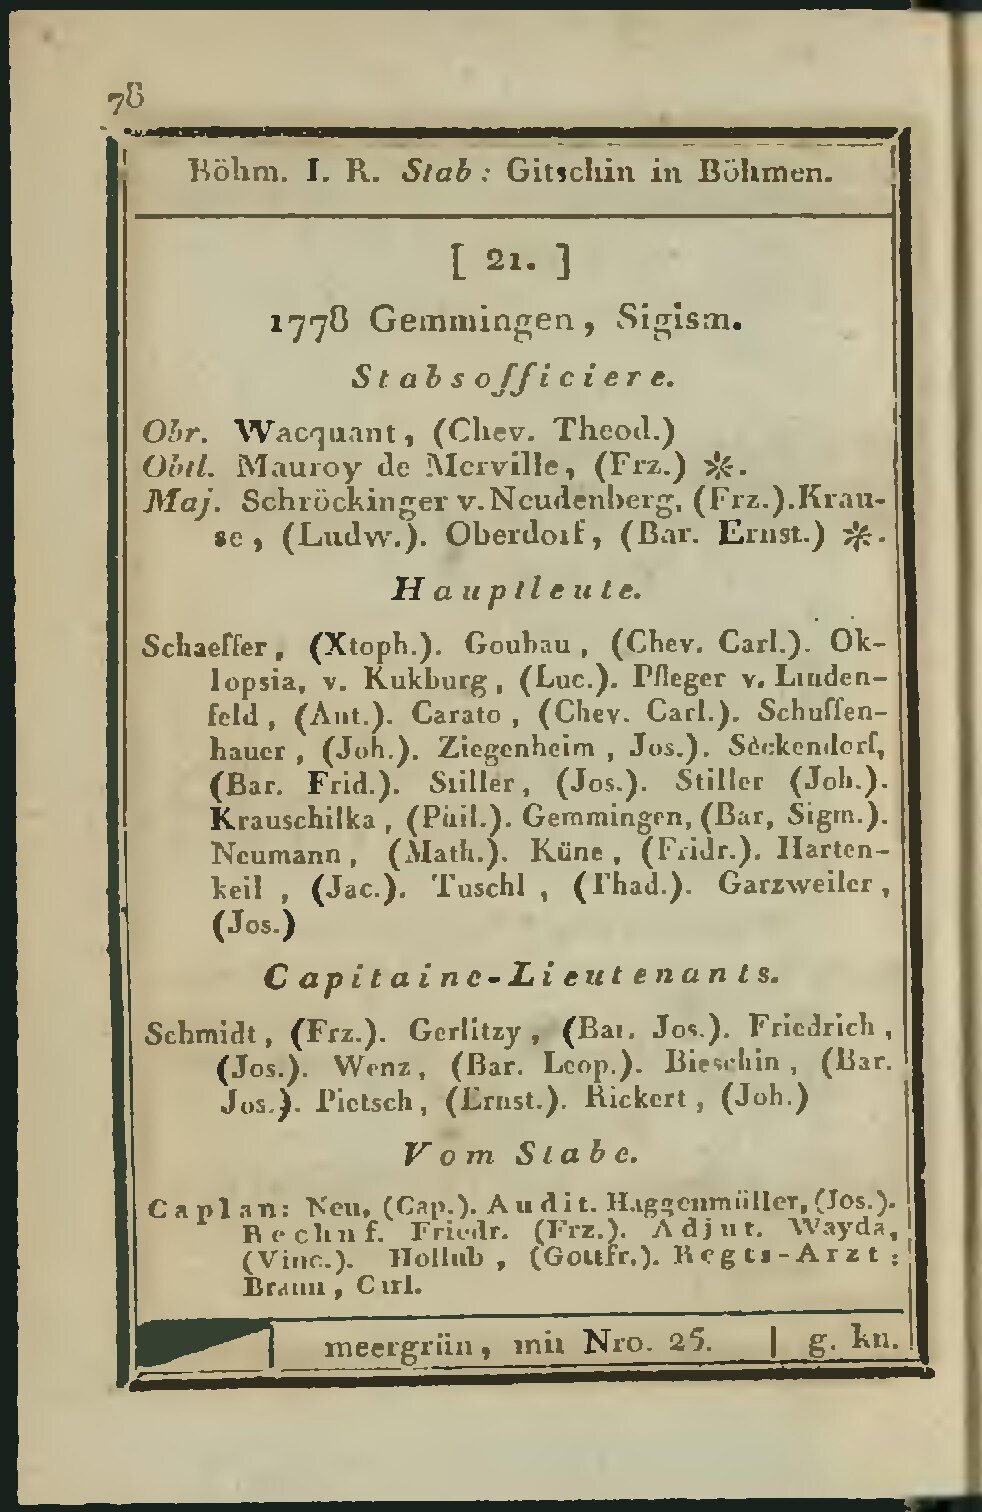 78
Böhm. I. R. Stab: Gitschin in Böhmen.
[ 21. ]
1778 Gemmingen, Sigism.
Stabsofficiere.
Obr. Wacquant, (Chev. Theod.)
Obtl. Mauroy de Merville, (Frz.) ✻.
Maj. Schröckinger v. Neudenberg, (Frz.). Krau-
se, (Ludw.). Oberdorf, (Bar. Ernst.) ✻.
Hauptleute.
Schaeffer, (Xtoph.). Goubau, (Chev. Carl.). Ok-
lopsia, v. Kukburg, (Luc.). Pfleger v. Linden-
feld, (Ant.). Carato, (Chev. Carl.). Schuffen-
hauer, (Joh.). Ziegenheim, Jos.). Seckendorf,
(Bar. Frid.). Stiller, (Jos.). Stiller (Joh.).
Krauschilka, (Phil.). Gemmingen, (Bar, Sigm.).
Neumann, (Math.). Küne, (Fridr.). Harten-
keil, (Jac.). Tuschl, (Thad.). Garzweiler,
(Jos.)
Capitaine-Lieutenants.
Schmidt, (Frz.). Gerlitzy, (Bar. Jos.). Friedrich,
(Jos.). Wenz, (Bar. Leop.). Bieschin, (Bar.
Jos.). Pietsch, (Ernst.). Rickert, (Joh.)
Vom Stabe.
Caplan: Neu, (Cap.). Audit. Haggenmüller, (Jos.).
Rechnf. Friedr. (Frz.). Adjut. Wayda,
(Vinc.). Hollub, (Gottfr.). Regts-Arzt:
Braun, Carl.
meergrün, mit Nro. 25. | g. kn.